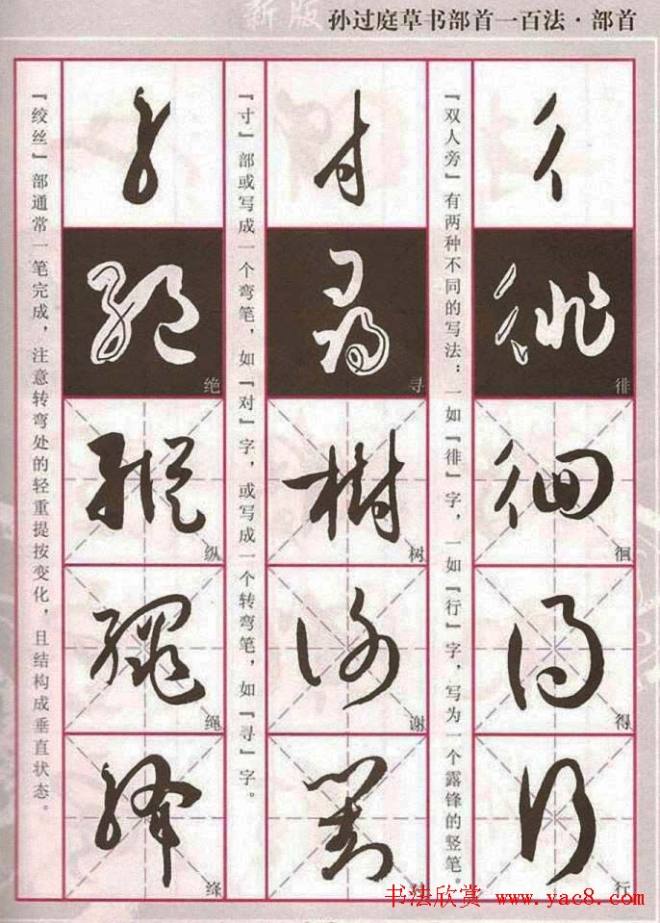 新版
孙过庭草书部首一百法·部首
『双人旁』有两种不同的写法:一如『徘』字,一如『行』字,写为一个露锋的竖笔。
徘
徊
得
行
『寸』部或写成一个弯笔,如『对』字,或写成一个转弯笔,如『寻』字。
寻
树
谢
对
『绞丝』部通常一笔完成,注意转弯处的轻重提按变化,且结构成垂直状态。
绝
纵
绳
绛
书法欣赏 www.yac8.com